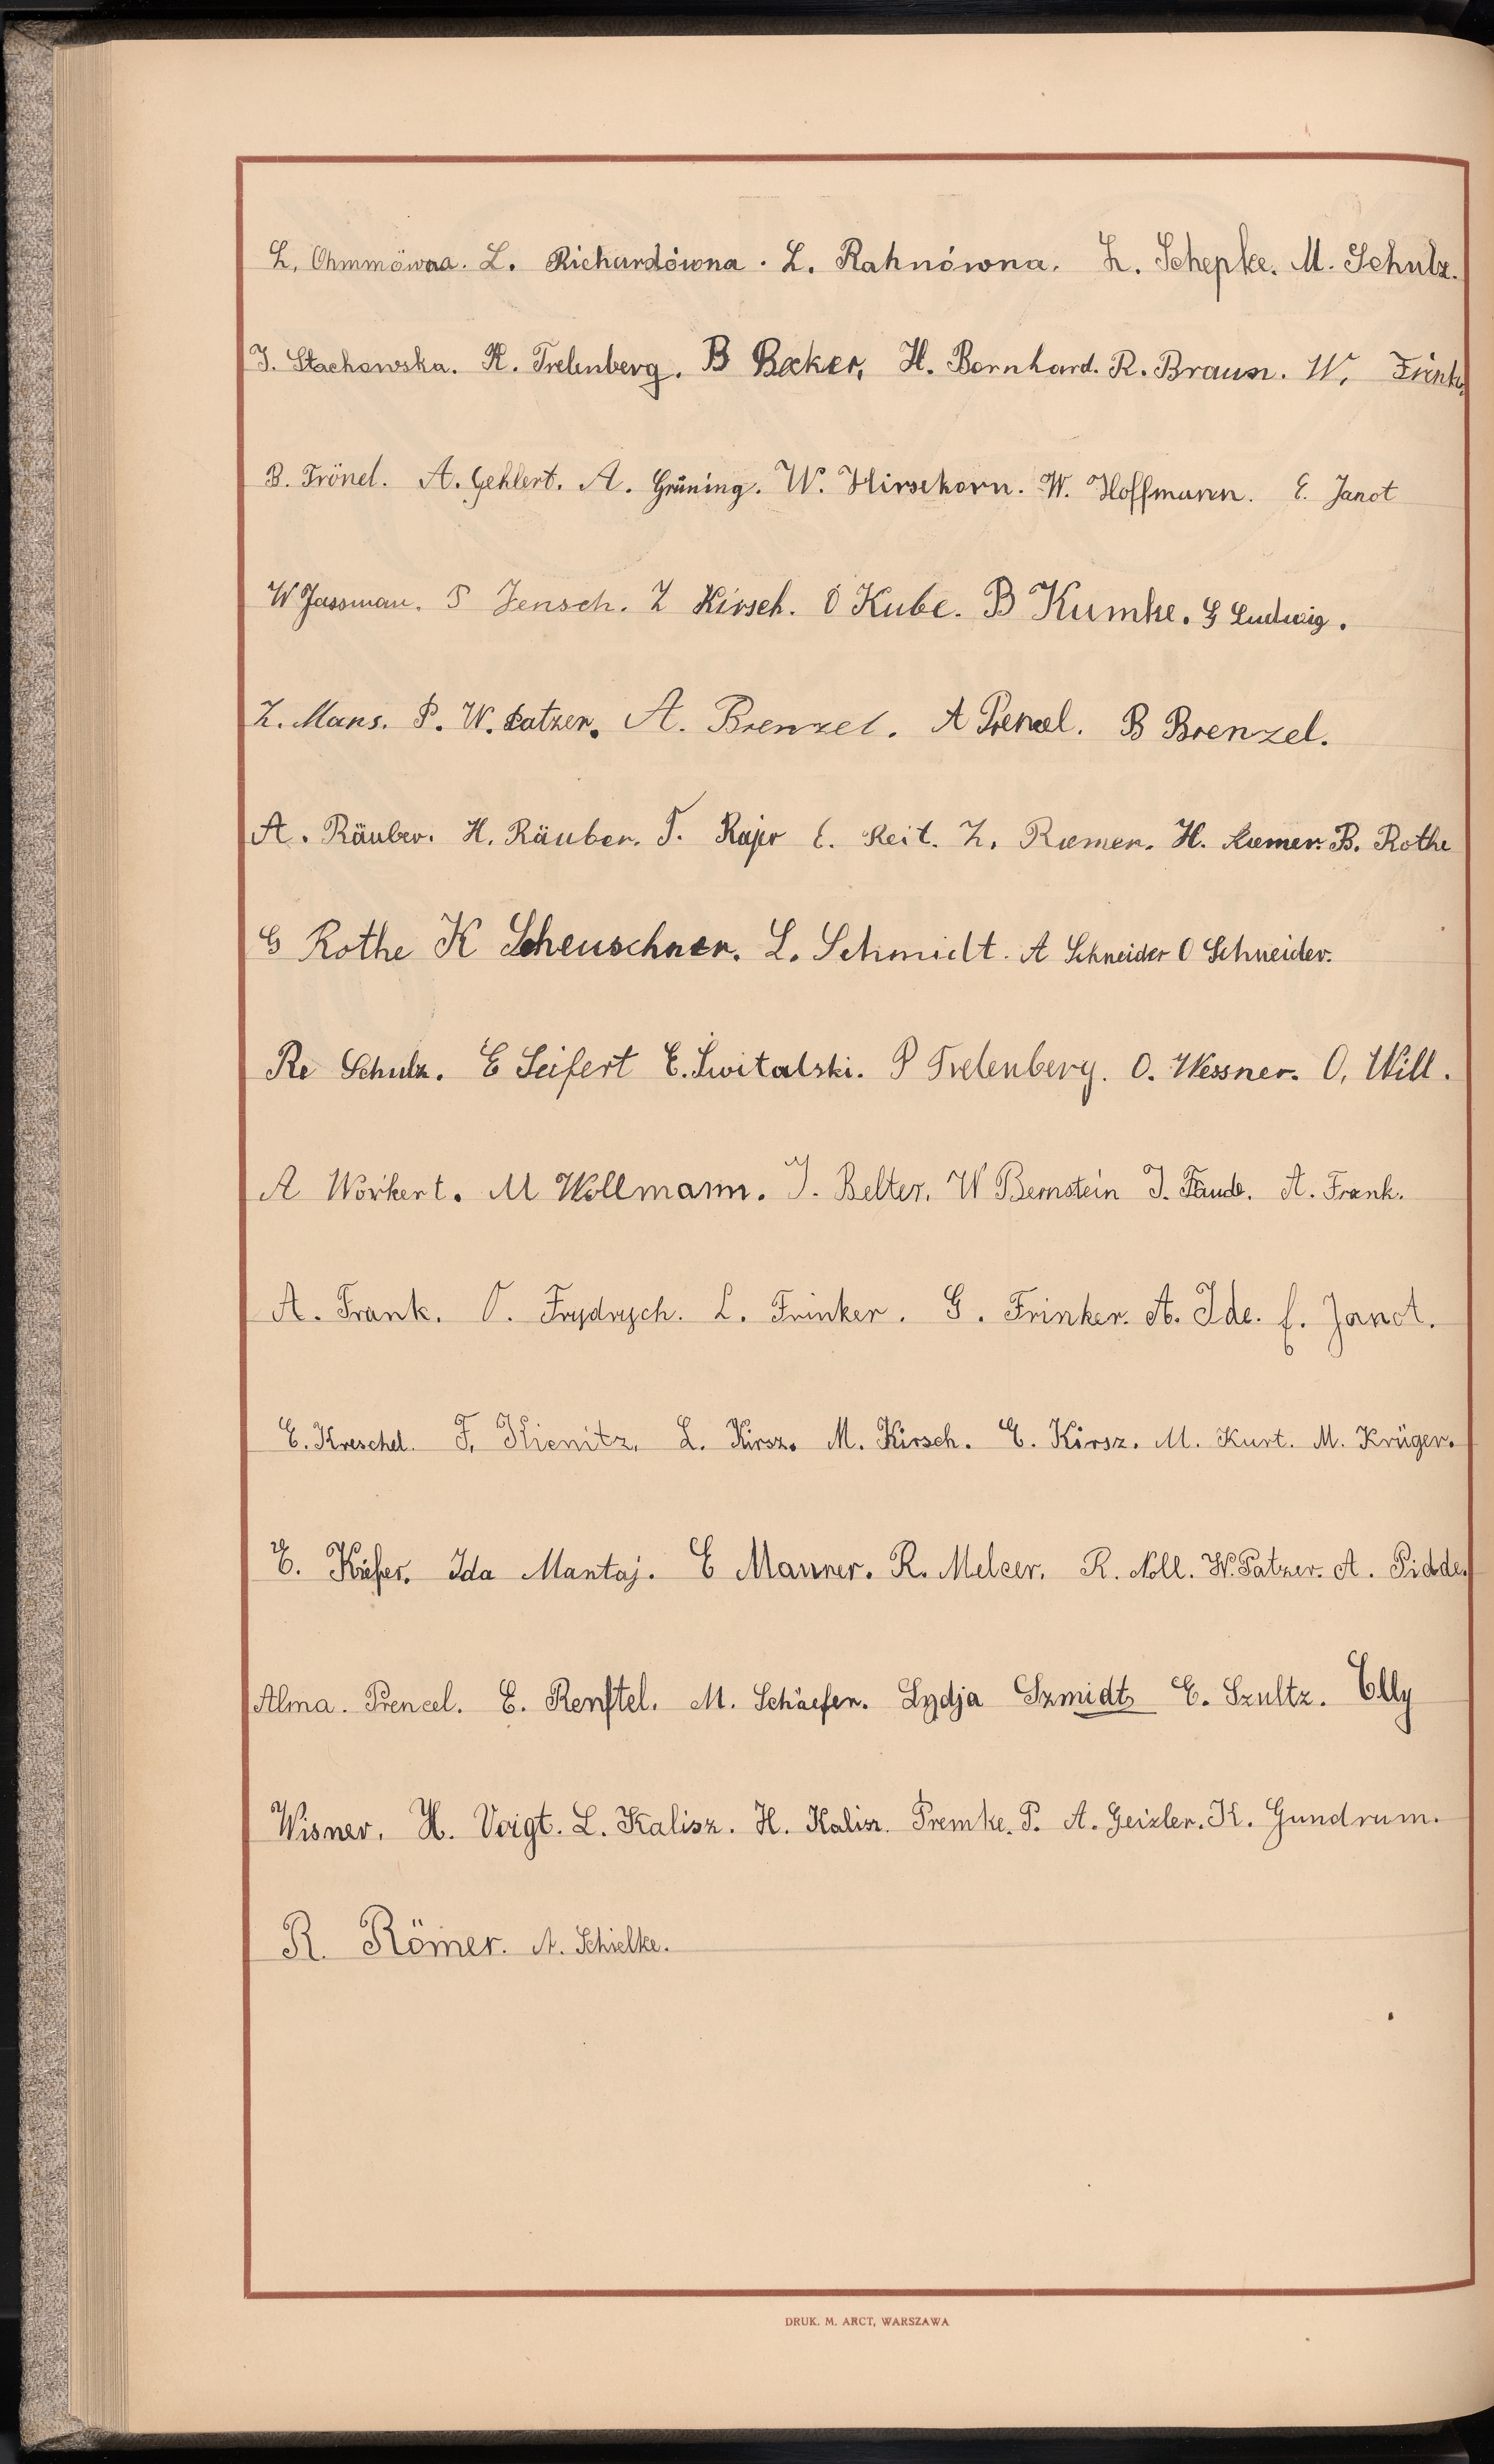 L. Ohmmöwna. L. Richardówna. L. Rahnówna. L. Schepke. M. Schulz.
J. Stachowska. R. Trelenberg. B Becker, H. Bernhard. R. Braun. W. Frink.
B. Frönel. A. Gehlert. A. Grüning. W. Hirsekorn. W. Hoffmann. E. Janot
W Jassman. S Jensch. Z Kirsch. O Kube. B Kumke. G Ludwig.
Z. Mans. P. W. Patzer. A. Brenzel. A Prencel. B Brenzel.
A. Räuber. H. Räuber. T. Rajer E. Reit. Z. Rœmer. H. Rœmer. B. Rothe
G Rothe K Scheuschner. L. Schmidt. A Schneider O Schneider.
Re Schulz. E Seifert E. Switalski. P Trelenberg. O. Wessner. O. Will.
A Workert. M Wollmann. J. Belter. W Bernstein J. Faude. A. Frank.
A. Frank. O. Frydrych. L. Frinker. G. Frinker. A. Ide. E. Janot.
E. Kreschel. F. Kienitz. L. Kirsz. M. Kirsch. E. Kirsz. M. Kurt. M. Krüger.
E. Kiefer. Ida Mantaj. E Manner. R. Melcer. R. Noll. W. Patzer. A. Pidde.
Alma. Prencel. E. Renftel. M. Schäefer. Lydja Szmidt E. Szultz. Elly
Wisner. H. Voigt. L. Kalisz. H. Kalisz. Premke. P. A. Geizler. K. Gundrum.
R. Römer. A. Schielke.
DRUK. M. ARCT, WARSZAWA